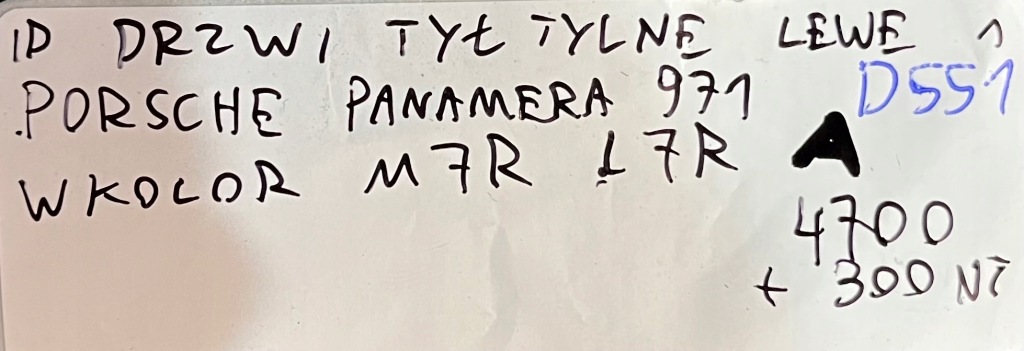 ID DRZWI TYŁ TYLNE LEWE 1
PORSCHE PANAMERA 971 D551
WKOLOR M7R L7R A
4700
+ 300 NT